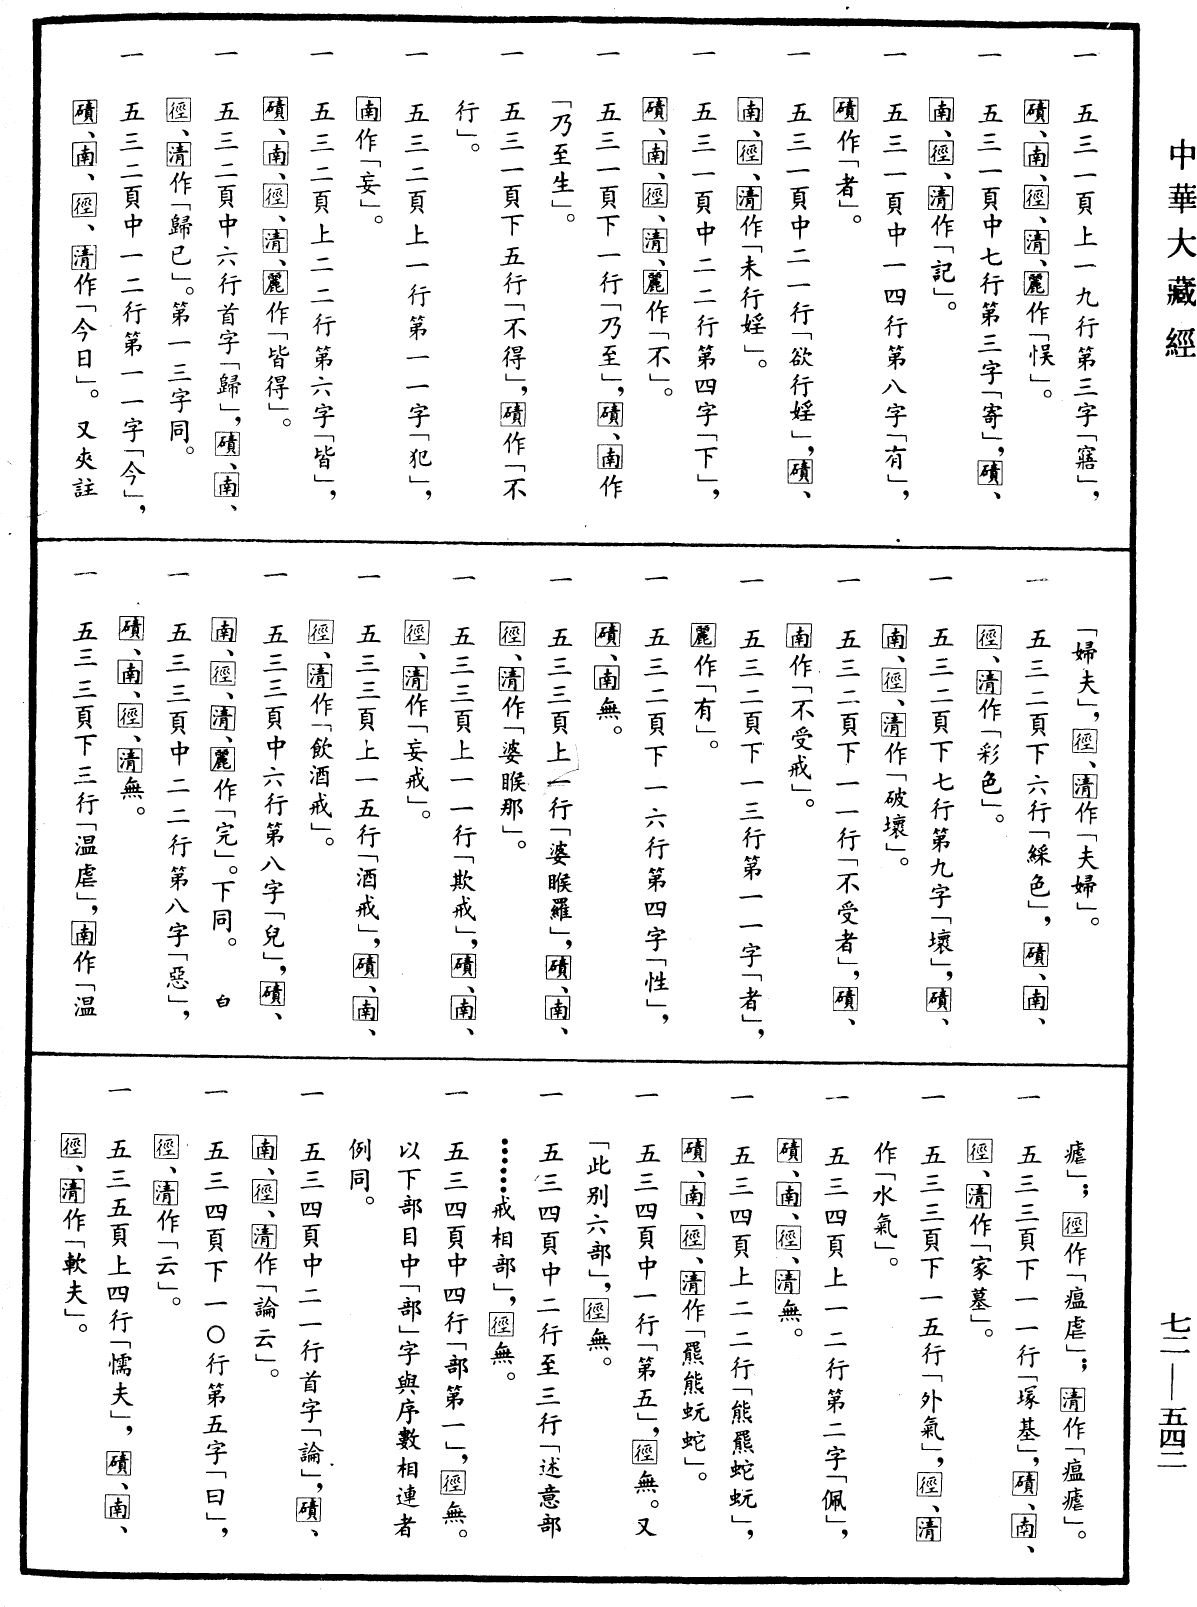 中華大藏經
一　五三一頁上一九行第三字「寤」，
磧、南、徑、清、麗作「悞」。
一　五三一頁中七行第三字「寄」，磧、
南、徑、清作「記」。
一　五三一頁中一四行第八字「有」，
磧作「者」。
一　五三一頁中二一行「欲行婬」，磧、
南、徑、清作「未行婬」。
一　五三一頁中二二行第四字「下」，
磧、南、徑、清、麗作「不」。
一　五三一頁下一行「乃至」，磧、南作
「乃至生」。
一　五三一頁下五行「不得」，磧作「不
行」。
一　五三二頁上一行第一一字「犯」，
南作「妄」。
一　五三二頁上二二行第六字「皆」，
磧、南、徑、清、麗作「皆得」。
一　五三二頁中六行首字「歸」，磧、南、
徑、清作「歸已」。第一三字同。
一　五三二頁中一二行第一一字「今」，
磧、南、徑、清作「今日」。又夾註
「婦夫」，徑、清作「夫婦」。
一　五三二頁下六行「綵色」，磧、南、
徑、清作「彩色」。
一　五三二頁下七行第九字「壞」，磧、
南、徑、清作「破壞」。
一　五三二頁下一一行「不受者」，磧、
南作「不受戒」。
一　五三二頁下一三行第一一字「者」，
麗作「有」。
一　五三二頁下一六行第四字「性」，
磧、南無。
一　五三三頁上一行「婆睺羅」，磧、南、
徑、清作「婆睺那」。
一　五三三頁上一一行「欺戒」，磧、南、
徑、清作「妄戒」。
一　五三三頁上一五行「酒戒」，磧、南、
徑、清作「飲酒戒」。
一　五三三頁中六行第八字「兒」，磧、
南、徑、清、麗作「完」。下同。　白
一　五三三頁中二二行第八字「惡」，
磧、南、徑、清無。
一　五三三頁下三行「温虐」，南作「温
瘧」；徑作「瘟虐」；清作「瘟瘧」。
一　五三三頁下一一行「塚基」，磧、南、
徑、清作「冢墓」。
一　五三三頁下一五行「外氣」，徑、清
作「水氣」。
一　五三四頁上一二行第二字「佩」，
磧、南、徑、清無。
一　五三四頁上二二行「熊羆蛇蚖」，
磧、南、徑、清作「羆熊蚖蛇」。
一　五三四頁中一行「第五」，徑無。又
「此别六部」，徑無。
一　五三四頁中二行至三行「述意部
……戒相部」，徑無。
一　五三四頁中四行「部第一」，徑無。
以下部目中「部」字與序數相連者
例同。
一　五三四頁中二一行首字「論」，磧、
南、徑、清作「論云」。
一　五三四頁下一〇行第五字「曰」，
徑、清作「云」。
一　五三五頁上四行「懦夫」，磧、南、
徑、清作「軟夫」。
七二—五四二